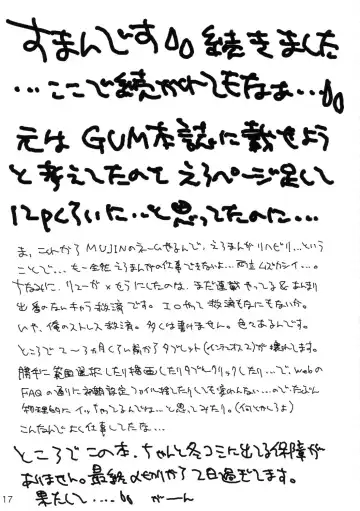 すまんです 続きました
…ここで続かれてもなぁ…
元は GUM本誌に載せよう
と考えてたので えろページ足して
12pくらいに…と思ってたのに…
ま、これから MUJINのネームやるんで、えろまんがリハビリ…という
ことで…もー全然 えろまんがの仕事できないよ…両立ムズカシイ…。
ちなみに、リューガ×もうらしたのは、まだ連載やってる&あんまり
出番のないキャラ救済です。エロやって救済もなにもないか。
いや、俺のストレス救済。多くは書けません。色々あるんです。
ところで2〜3ヵ月くらい前からタブレット(インテュオス2)が壊れてます。
勝手に範囲選択したり描画したりダブルクリックしたり…で、Webの
FAQの通りに初期設定ファイル捨てたりしても変わんない…のでたぶん
物理的にイッちゃってるんでね…と思ってみたり。(何とかしろよ)
こんなんでよく仕事してたな…
ところで この本、ちゃんと冬コミに出てる保障が
ありません。最終〆切から2日過ぎてます。
果たして…… がーん
17